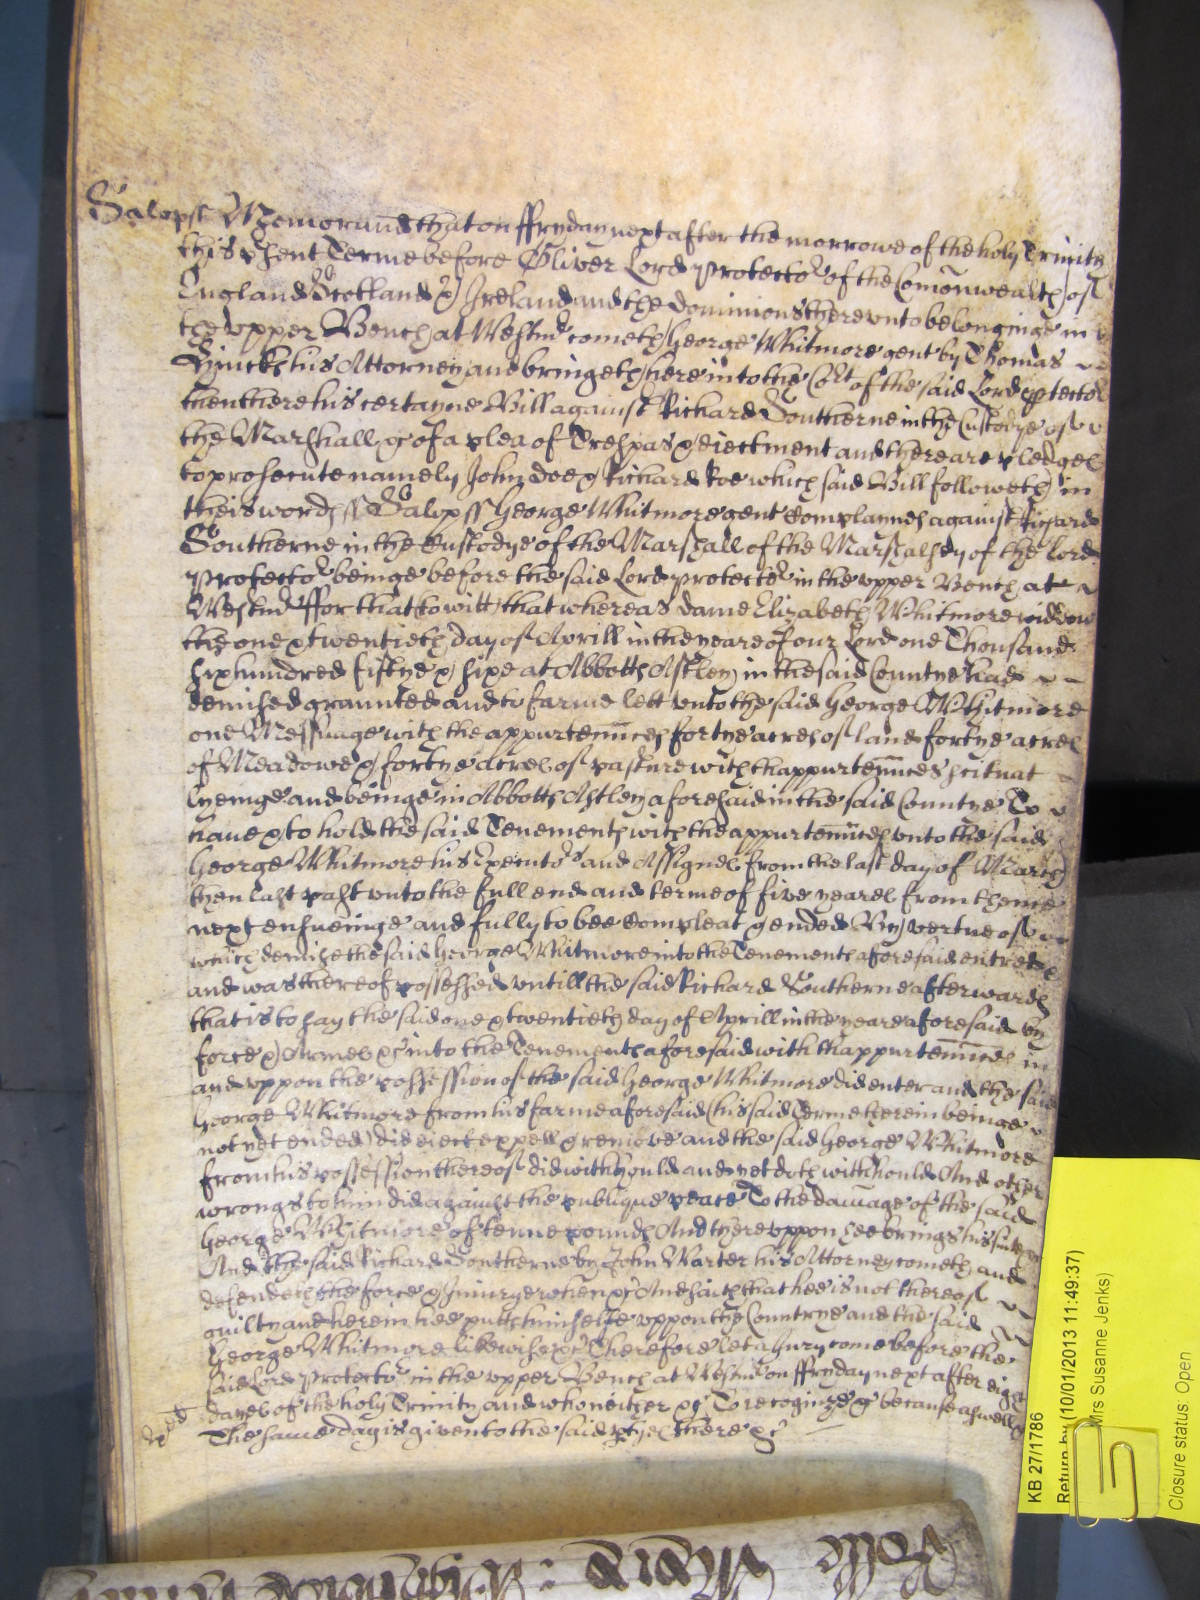 Salop ss Memorand that on ffryday next after the morrowe of the holy Trinity
this psent Terme before Oliver Lord Protector of the Comonwealth of
England Scotland & Ireland and the dominions thereunto belonginge in
the upper Bench at Westmr cometh George Whitmore gent by Thomas
his Attorney and bringeth here into the Cort of the said Lord ptector
then there his certayne Bill against Richard Southerne in the Custodye of
the Marshall &c of a plea of Trespas & eiectment and there are pledges
to prosecute namely John Doe & Richard Roe which said Bill followeth in
theis words ss Salop ss George Whitmore gent complaynes against Richard
Southerne in the Custodye of the Marshall of the Marshalsey of the Lord
Protector beinge before the said Lord Protector in the upper Bench at
Westmr ffor that to witt that whereas dame Elizabeth Whitmore widdow
the one & twentieth day of Aprill in the yeare of our Lord one Thousand
six hundred fiftye & sixe at Abbotts Astley in the said Countye had
demised graunted and to farme lett unto the said George Whitmore
one Messuage with the appurtennces fortye acres of land fortye acres
of Meadowe & fortye acres of pasture with thappurtennces scituat
lyeinge and beinge in Abbotts Astley aforesaid in the said Countye To
have & to hold the said Tenements with the appurtennces unto the said
George Whitmore his Executors and Assignes from the last day of March
then last past unto the full end and terme of five yeares from thence
next ensueinge and fully to bee compleat & ended By vertue of
which demise the said George Whitmore into the Tenements aforesaid entred
and was thereof possessed untill the said Richard Southerne afterwards
that is to say the said one & twentieth day of Aprill in the yeare aforesaid by
force & Armes &c into the Tenements aforesaid with thappurtennces in
and uppon the possession of the said George Whitmore did enter and the said
George Whitmore from his farme aforesaid (his said Terme therein beinge
not yet ended) did eiect expell & remove and the said George Whitmore
from his possession thereof did withhould and yet doth withhould And other
wrongs to him did against the publique peace To the damage of the said
George Whitmore of tenne pounds And thereuppon hee brings his suite
And the said Richard Southerne by John Warter his Attorney cometh and
defendeth the force & Iniury when &c And saith that hee is not thereof
guilty and herein hee putts himselfe uppon the Countrye and the said
George Whitmore likewise &c Therefore let a Jury come before the
said Lord Protector in the upper Bench at Westmr on ffryday next after eight
dayes of the holy Trinity and who neither &c To recognize &c because aswell
The same day is given to the said ptyes there &c
KB 27/1786
Return by (10/01/2013 11:49:37)
Mrs Susanne Jenks)
Closure status: Open